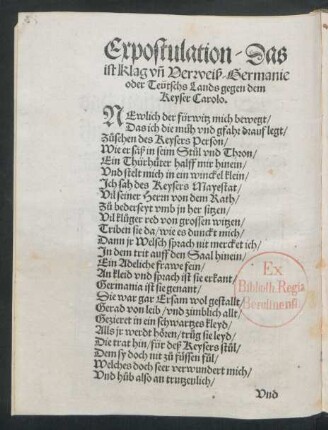 Expostulation / Das
ist Klag vñ Verweiß / Germanie
oder Teütschs Lands gegen dem
Keyser Carolo.
NEwlich der fürwitz mich bewegt /
Das ich die müh vnd gfahr drauf legt /
Zůsehen des Keysers Person /
Wie er säß in seim Stůl vnd Thron /
Ein Thürhüter halff mir hinein /
Vnd stelt mich in ein winckel klein /
Ich sah des Keysers Mayestat /
Vil seiner Herrn von dem Rath /
Zů bederseyt vmb jn her sitzen /
Vil klůger red von grossen witzen /
Triben sie da / wie es dunckt mich /
Dann jr Welsch sprach nit mercket ich /
In dem trit auff den Saal hinein /
Ein Adeliche fraw fein /
An kleid vnd sprach ist sie erkant /
Germania ist sie genant /
Sie war gar Ersam wol gestallt /
Gerad von leib / vnd zimblich allt /
Gezieret in ein schwartzes kleyd /
Als jr werdt hören / trůg sie leyd /
Die trat hin / für deß Keysers stůl /
Dem sy doch nit zů füssen fůl /
Welches doch seer verwundert mich /
Vnd hůb also an trutzenlich /
Vnd
Ex
Biblioth. Regia
Berolinensi.